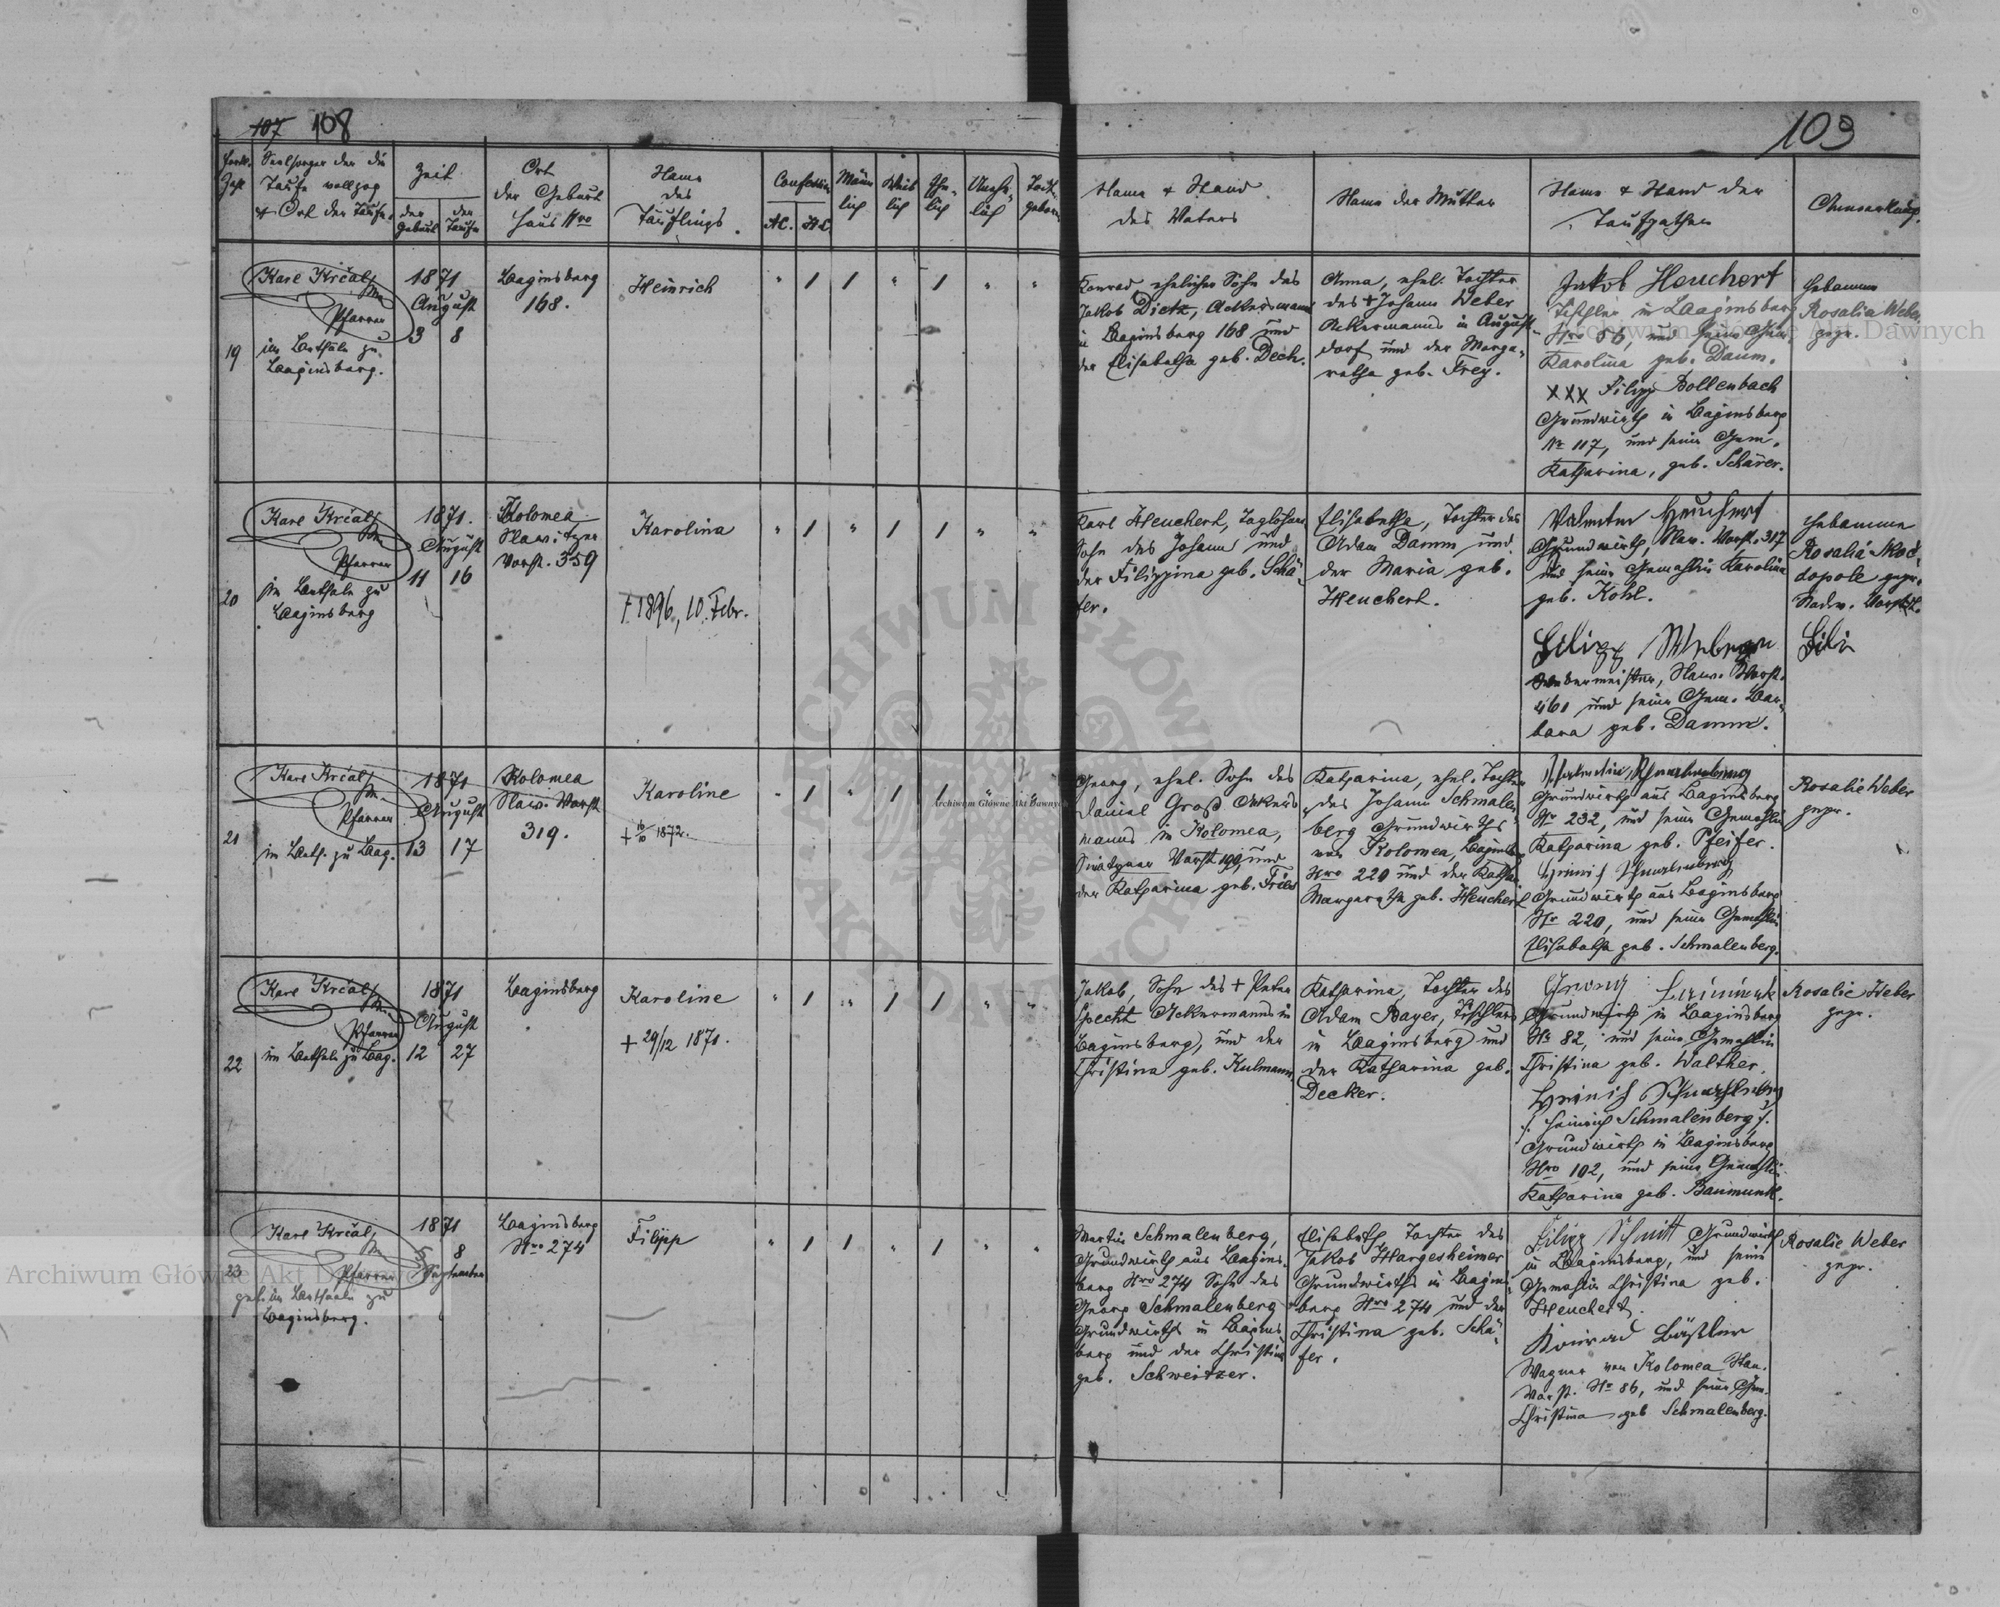 107 108
103
Zeit
Ort
der Geburt
Haus Nro
Name
des
Täuflings.
Confession
A.C. H.C.
Männ
lich
Weib
lich
Ehe-
lich
Unehe-
lich
Todt
geboren
Seelsorger der die
Taufe vollzog
& Ort der Taufe.
der
Geburt
der
Taufe
Name & Stand
des Vaters
Name der Mutter
Name & Stand der
Taufpathen
Anmerkung.
19
Karl Krčal
Pfarrer
im Bethale zu
Baginsberg.
1871
August
3 8
Baginsberg
168.
Heinrich
Konrad ehelicher Sohn des
Jakob Dietz, Ackermann
in Baginsberg 168 und
der Elisabetha geb. Dech.
Anna, ehel. Tochter
des + Johann Weber
Ackermanns in August-
dorf und der Marga-
retha geb. Frey.
Jakob Heuchert
Tischler in Baginsberg
Nro 86, und seine Gem.
Karolina geb. Daum.
XXX Filipp Bollenbach
Grundwirth in Baginsberg
No 117, und seine Gem.
Katharina, geb. Schärer.
Hebamme
Rosalia Weber
gepr.
20
Karl Krčal
Pfarrer
im Bethale zu
Baginsberg
1871.
August
11 16
Kolomea
Vorst. 359
Karolina
+ 1896, 10. Febr.
Karl Heuchert, Taglöhner
Sohn des Johann und
der Filippina geb. Schä-
fer.
Elisabetha, Tochter des
Adam Damm und
der Maria geb.
Heuchert.
Valentin Heuchert
Grundwirth, Naw. Vorst. 317
und seine Gemahlin Karolina
geb. Kohl.
Filipp
Webermeister, Naw. Vorst.
461 und seine Gem. Bar-
bara geb. Damm.
Hebamme
Rosalia
gepr.
Nadw. Vorst.
21
Karl Krčal
Pfarrer
im Beth. zu Bag.
1871
August
13 17
Kolomea
Naw. Vorst
319.
Karoline
+ 16/10 1872.
Georg, ehel. Sohn des
Daniel Groß Ackers
manns in Kolomea,
Vorst 190, und
der Katharina geb. Fries
Katharina, ehel. Tochter
des Johann Schmalen-
berg Grundwirths
von Kolomea, Baginsb.
Nro 220 und der Kath.
Margaretha geb. Heuchert
Valentin Schmalenberg
Grundwirth aus Baginsberg
No 232, und seine Gemahlin
Katharina geb. Pfeifer.
Heinrich Schmalenberg
Grundwirth aus Baginsberg
No 220, und seine Gemahlin
Elisabetha geb. Schmalenberg.
Rosalie Weber
gepr.
22
Karl Krčal
Pfarrer
im Bethale zu Bag.
1871
August
12 27
Baginsberg
Karoline
+ 29/12 1871.
Jakob, Sohn des + Peter
Specht Ackermanns in
Baginsberg, und der
Christina geb. Kulmann
Katharina, Tochter des
Adam Bayer, Tischlers
in Baginsberg und
der Katharina geb.
Decker.
Georg
Grundwirth in Baginsberg
No 82, und seine Gemahlin
Christina geb. Walther.
Heinrich Schmalenberg
/. Heinrich Schmalenberg /.
Grundwirth in Baginsberg
Nro 102, und seine Gemahlin
Katharina geb. Baumunk.
Rosalie Weber
gepr.
23
Karl Krčal
Pfarrer
im Bethale zu
Baginsberg.
1871
8
September
Baginsberg
Nro 274
Filipp
Martin Schmalenberg,
Grundwirth aus Bagins-
berg Nro 274 Sohn des
Georg Schmalenberg
Grundwirths in Bagins
berg und der Christine
geb. Schweitzer.
Elisabeth Tochter des
Jakob Hargesheimer
Grundwirths in Bagins-
berg Nro 274 und der
Christina geb. Schä-
fer.
Filipp Schmitt Grundwirth
in Baginsberg, und seine
Gemahlin Christina geb.
Heuchert.
Konrad Bäßler
Wagner von Kolomea Naw.
Vorst. No 86, und seine Gem.
Christina geb Schmalenberg.
Rosalie Weber
gepr.
Archiwum Główne Akt Dawnych
Archiwum Główne Akt Dawnych
Archiwum Główne Akt Dawnych
ARCHIWUM GŁÓWNE AKT DAWNYCH